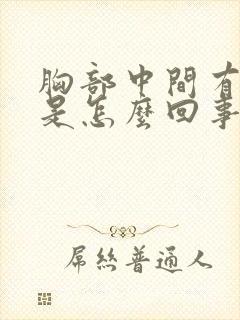 胸部中間有
是怎麼回事
屌絲普通人